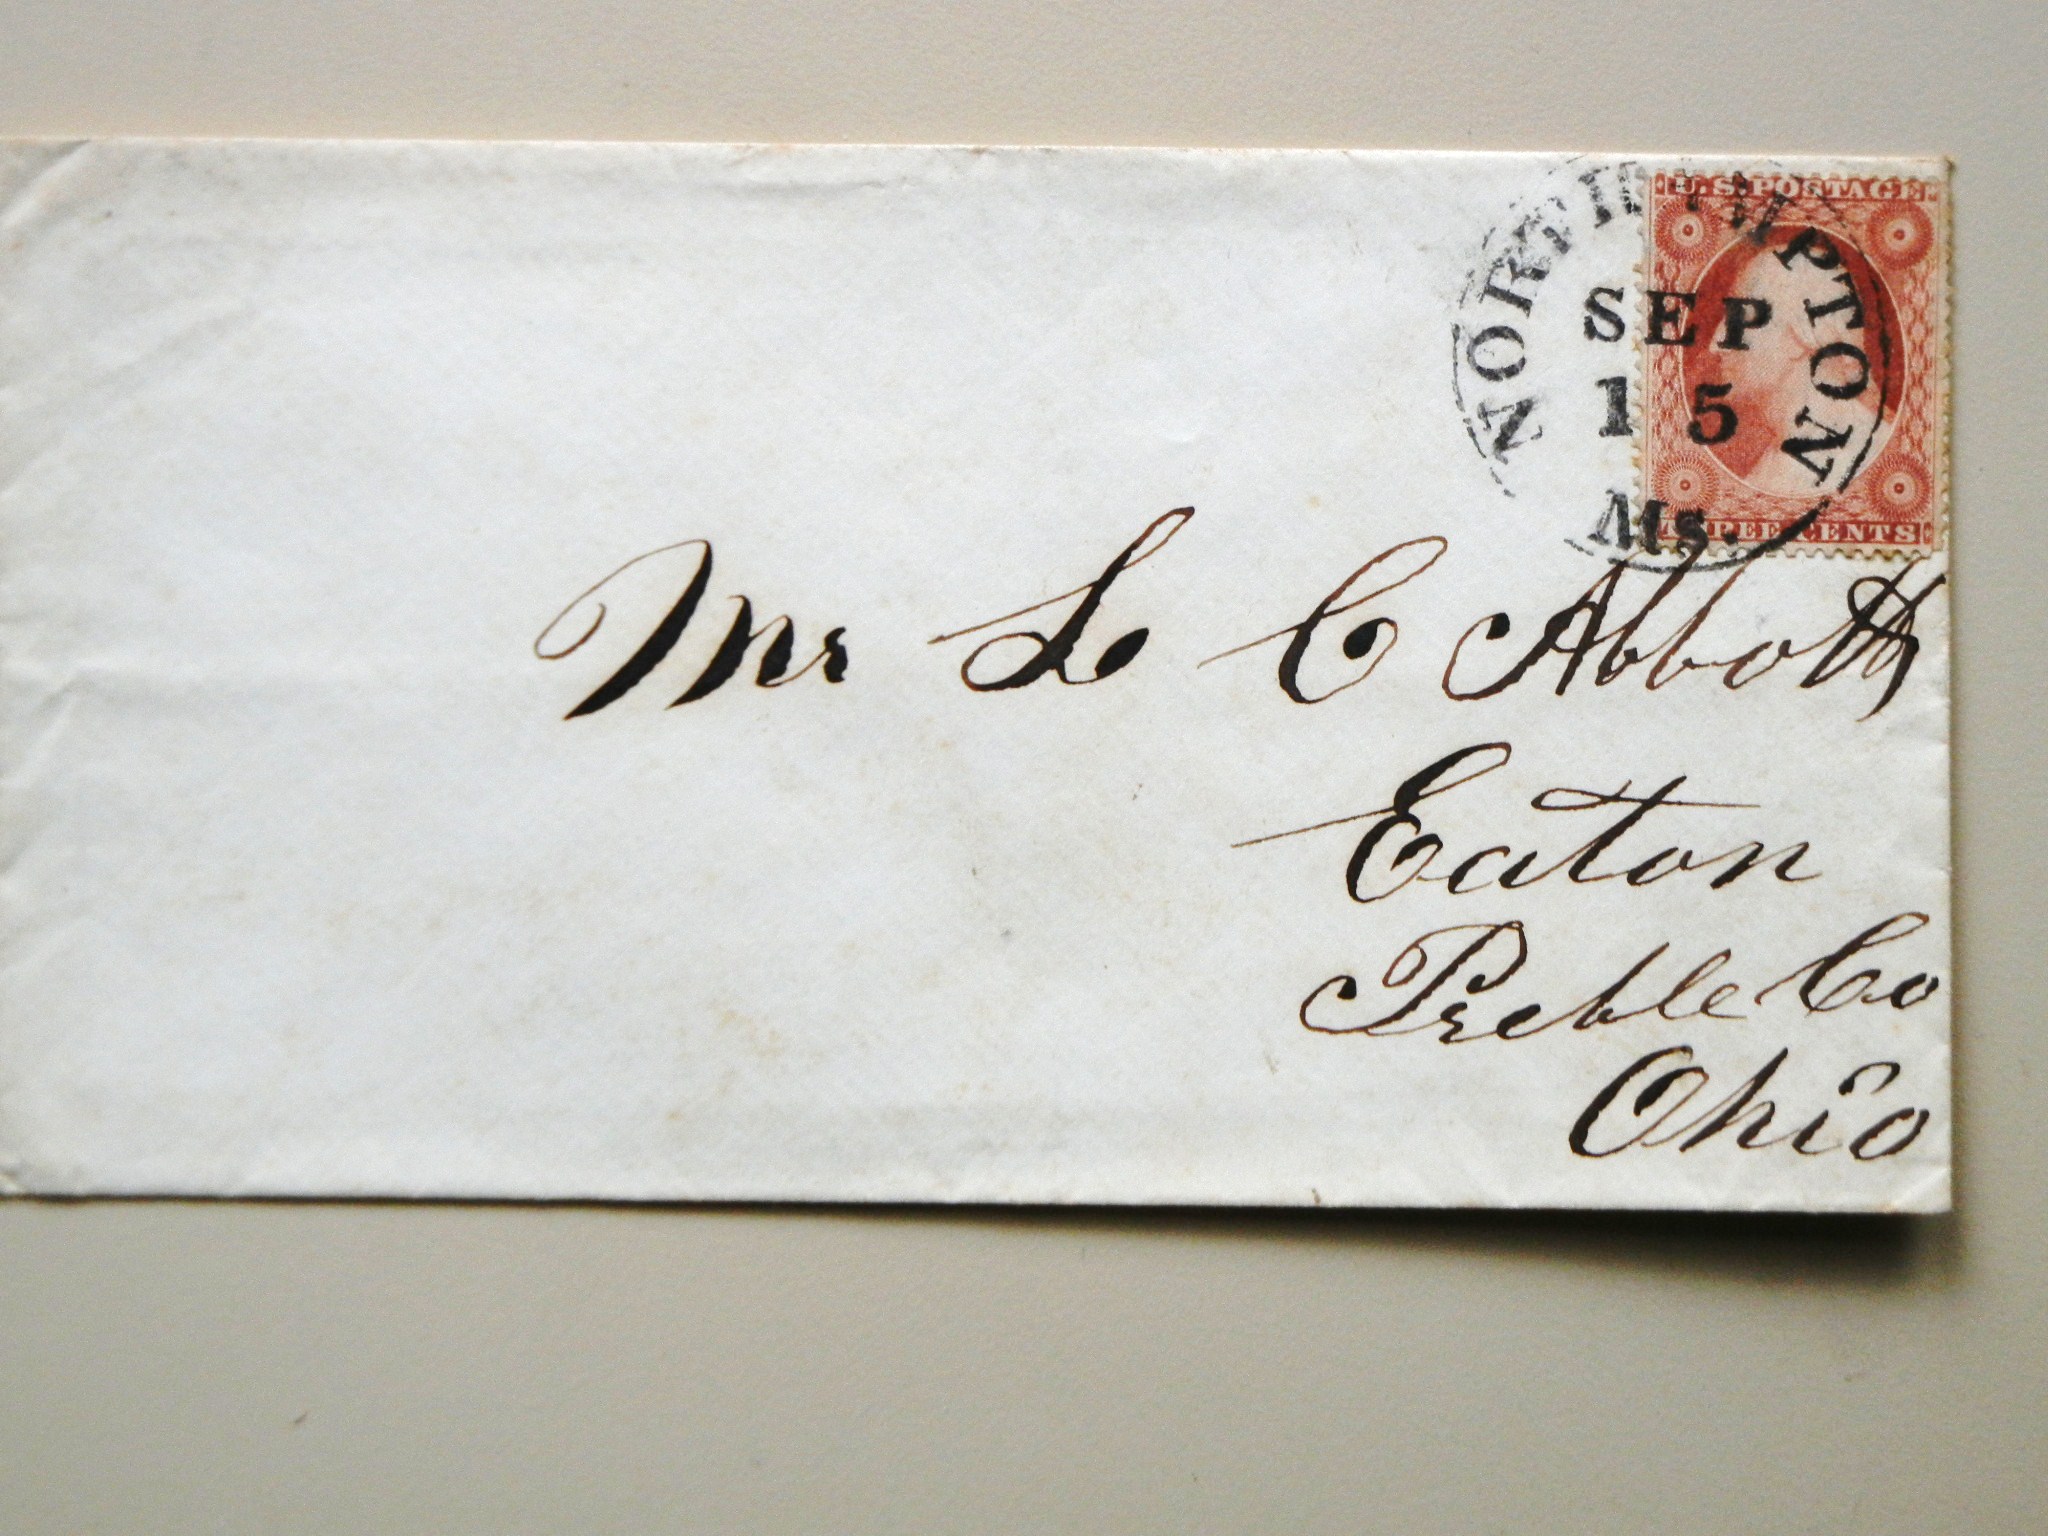 U.S. POSTAGE
NORTHAMPTON
SEP
15
Ms.
THREE CENTS
Mr L C Abbott
Eaton
Preble Co
Ohio